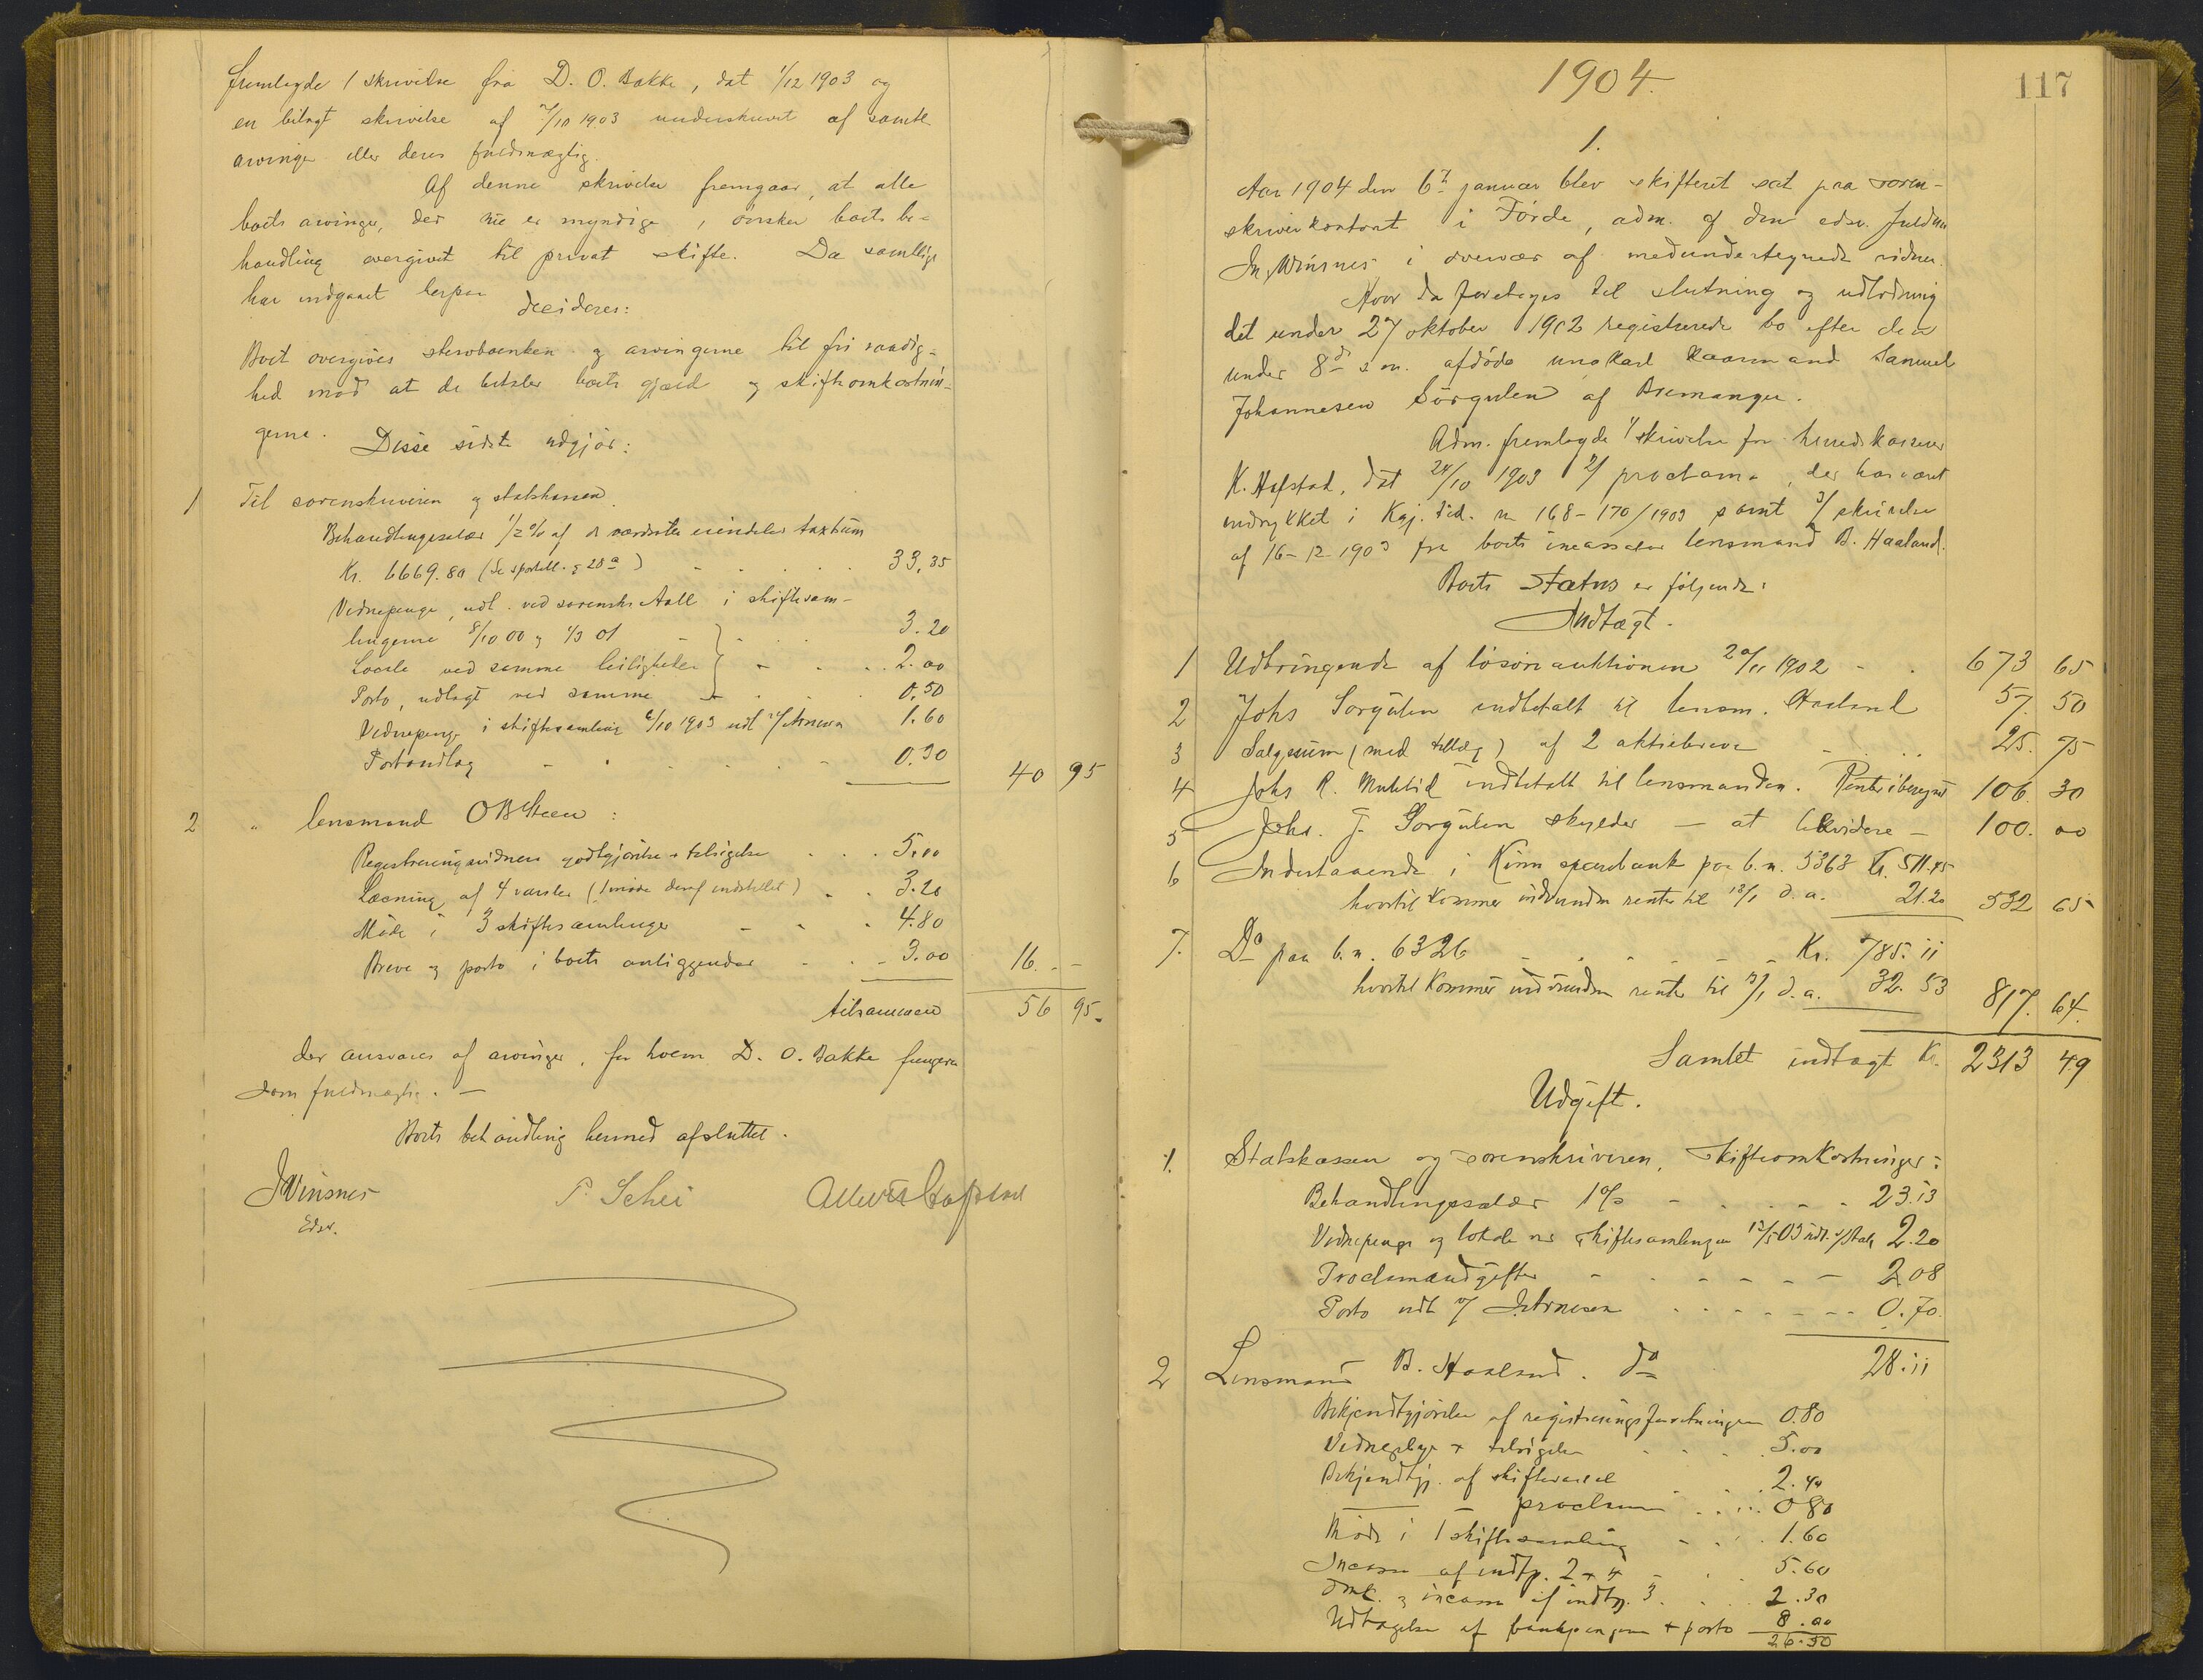 fremlagde 1 skrivelse fra D. O. Bakke, dat 1/12 1903 og
en bilagt skrivelse af 7/10 1903 underskrevet af samtl
arvinger eller deres fuldmægtig.
Af denne skrivelse fremgaar, at alle
boets arvinger, der nu er myndige, ønsker boets be-
handling overgivet til privat skifte. Da samtlige
har indgaaet herpaa
decideres:
Boet overgives sterboenken og arvingerne til fri raadig-
hed mod at de betaler boets gjæld og skifteomkostnin-
gerne.
Disse sidste udgjør:
1 Til sorenskriveren og statskassen
Behandlingssalær 1/2 % af de vurderte eiendeles taxtsum
Kr. 6669.80 (se sportell. § 28 a) 33,35
Vidnepenge, udl. ved sorenskr Aall i skiftesam-
lingerne 8/10 00 og 1/3 01 3.20
Locale ved samme leiligheter 2.00
Porto, udlagt ved samme 0.50
Vidnepenge i skiftesamling 6/10 1903 udl 1.60
Portoudlæg 0.30
40 95
2 " lensmand O B Steen:
Registreringsvidners godtgjørelse + tilsigelse 5.00
Læsning af 4 varsler (1 møde deraf indstillet) 3.20
Møde i 3 skiftesamlinger 4.80
Breve og porto i boets anliggender 3.00
16. -
tilsammen 56 95.
der ansvares af arvinger, for hvem D. O. Bakke fungerer
som fuldmægtig. —
Boets behandling hermed afsluttet.
J Vinsnes P. Schei
Edsv.
117
1904.
1.
Aar 1904 den 6te januar blev skifteret sat paa soren-
skriverkontoret i Førde, adm. af den edsv. fuldm
Jn. Vinsnes i overvær af medundertegnede vidner.
Hvor da foretoges til slutning og udlodning
det under 27 oktober 1902 registrerede bo efter den
under 8de s. m. afdøde ungkarl kaarmand Samuel
Johannesen Sørgulen af Bremanger.
Adm. fremlagde 1/ skrivelse fra herredskasserer
K. Hafstad, dat 24/10 1903 2/ proclama, der har været
indrykket i Kgj. tid. n 168-170/1903 samt 3/ skrivelse
af 16-12-1903 fra boets incassator lensmand B. Haaland.
Boets Status er følgende:
Indtægt.
1 Udbringende af løsøreauktionen 20/11 1902 673 65
2 Johs Sørgulen indbetalt til lensm. Haaland 57. 50
3 Salgssum (med tillæg) af 2 aktiebreve 25. 75
4 Johs R. indbetalt til lensmanden. Renter iberegnet 106. 30
5 Johs. J. Sørgulen skylder — at likvidere — 100. 00
6 Indestaaende i Kinn sparebank paa b. n. 5363 Kr. 511.45
hvortil kommer indvundne renter til 12/1 d. a. 21.20 532 65
7. Do paa b. n. 6326 Kr. 785.11
hvortil kommer indvundne renter til 12/1 d. a. 32.53 817. 64.
Samlet indtægt Kr. 2313 49
Udgift.
1. Statskassen og sorenskriveren, skifteomkostninger:
Behandlingssalær 1 % 23.13
Vidnepenge og lokale ved skiftesamlingen 12/5 03 udl. 2.20
Proclamaudgifter 2.08
Porto udl 0.70.
28.11
2 Lensmand B. Haaland. do
Bekjendtgjørelse af registreringsforretningen 0.80
Vidnegebyr + tilsigelse 5.00
Bekjendtgj. af skiftevarsel 2.40
— " — proclama 0.80
Møde i 1 skiftesamling 1.60
Incasso af indtp. 2 + 4 5.60
Omk. og incasso af indtp. 3. 2.30
Udtagelse af bankpengene + porto 8.00
26.50